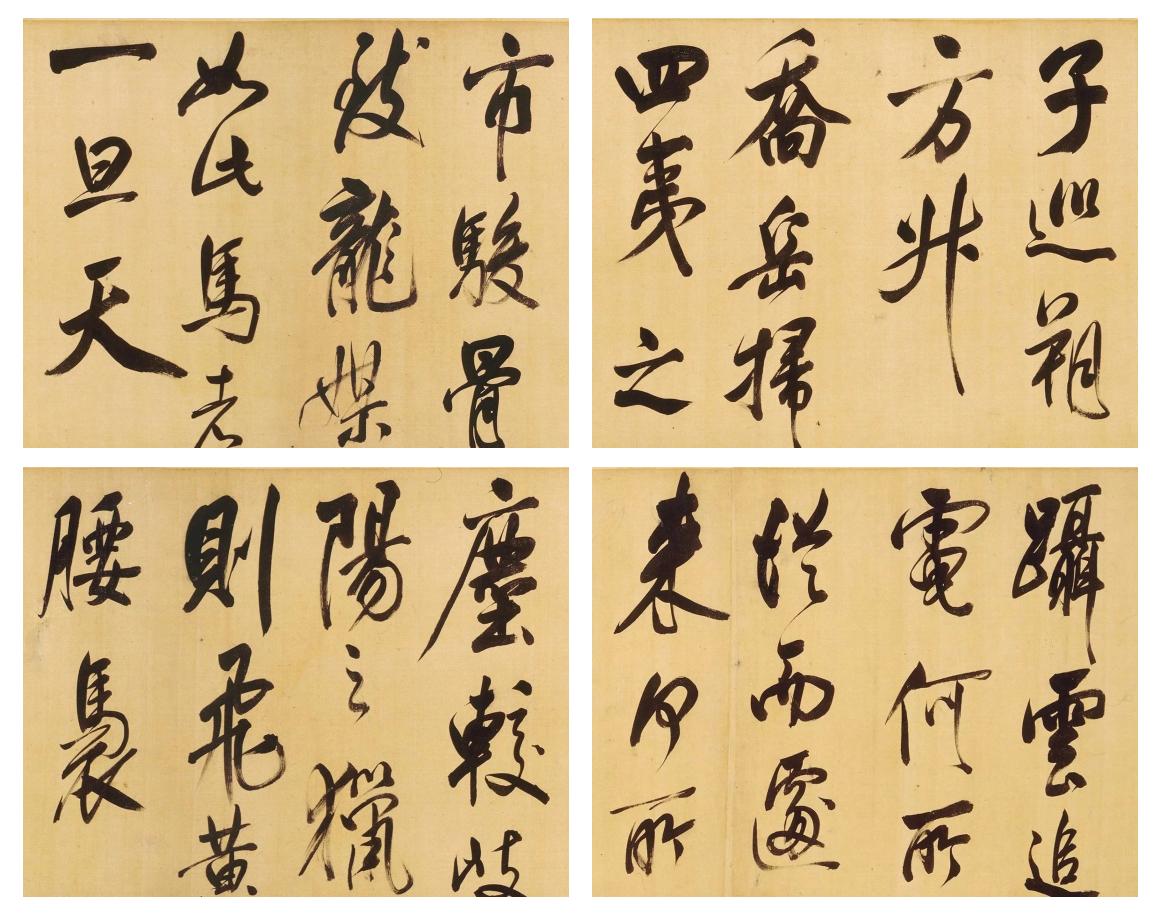 市駿骨
致龍媒
如此馬者
一旦天
子巡朔
方升
喬岳掃
四夷之
塵較岐
陽之獵
則飛黃
腰褭
躡雲追
電何所
從而遽
来何所